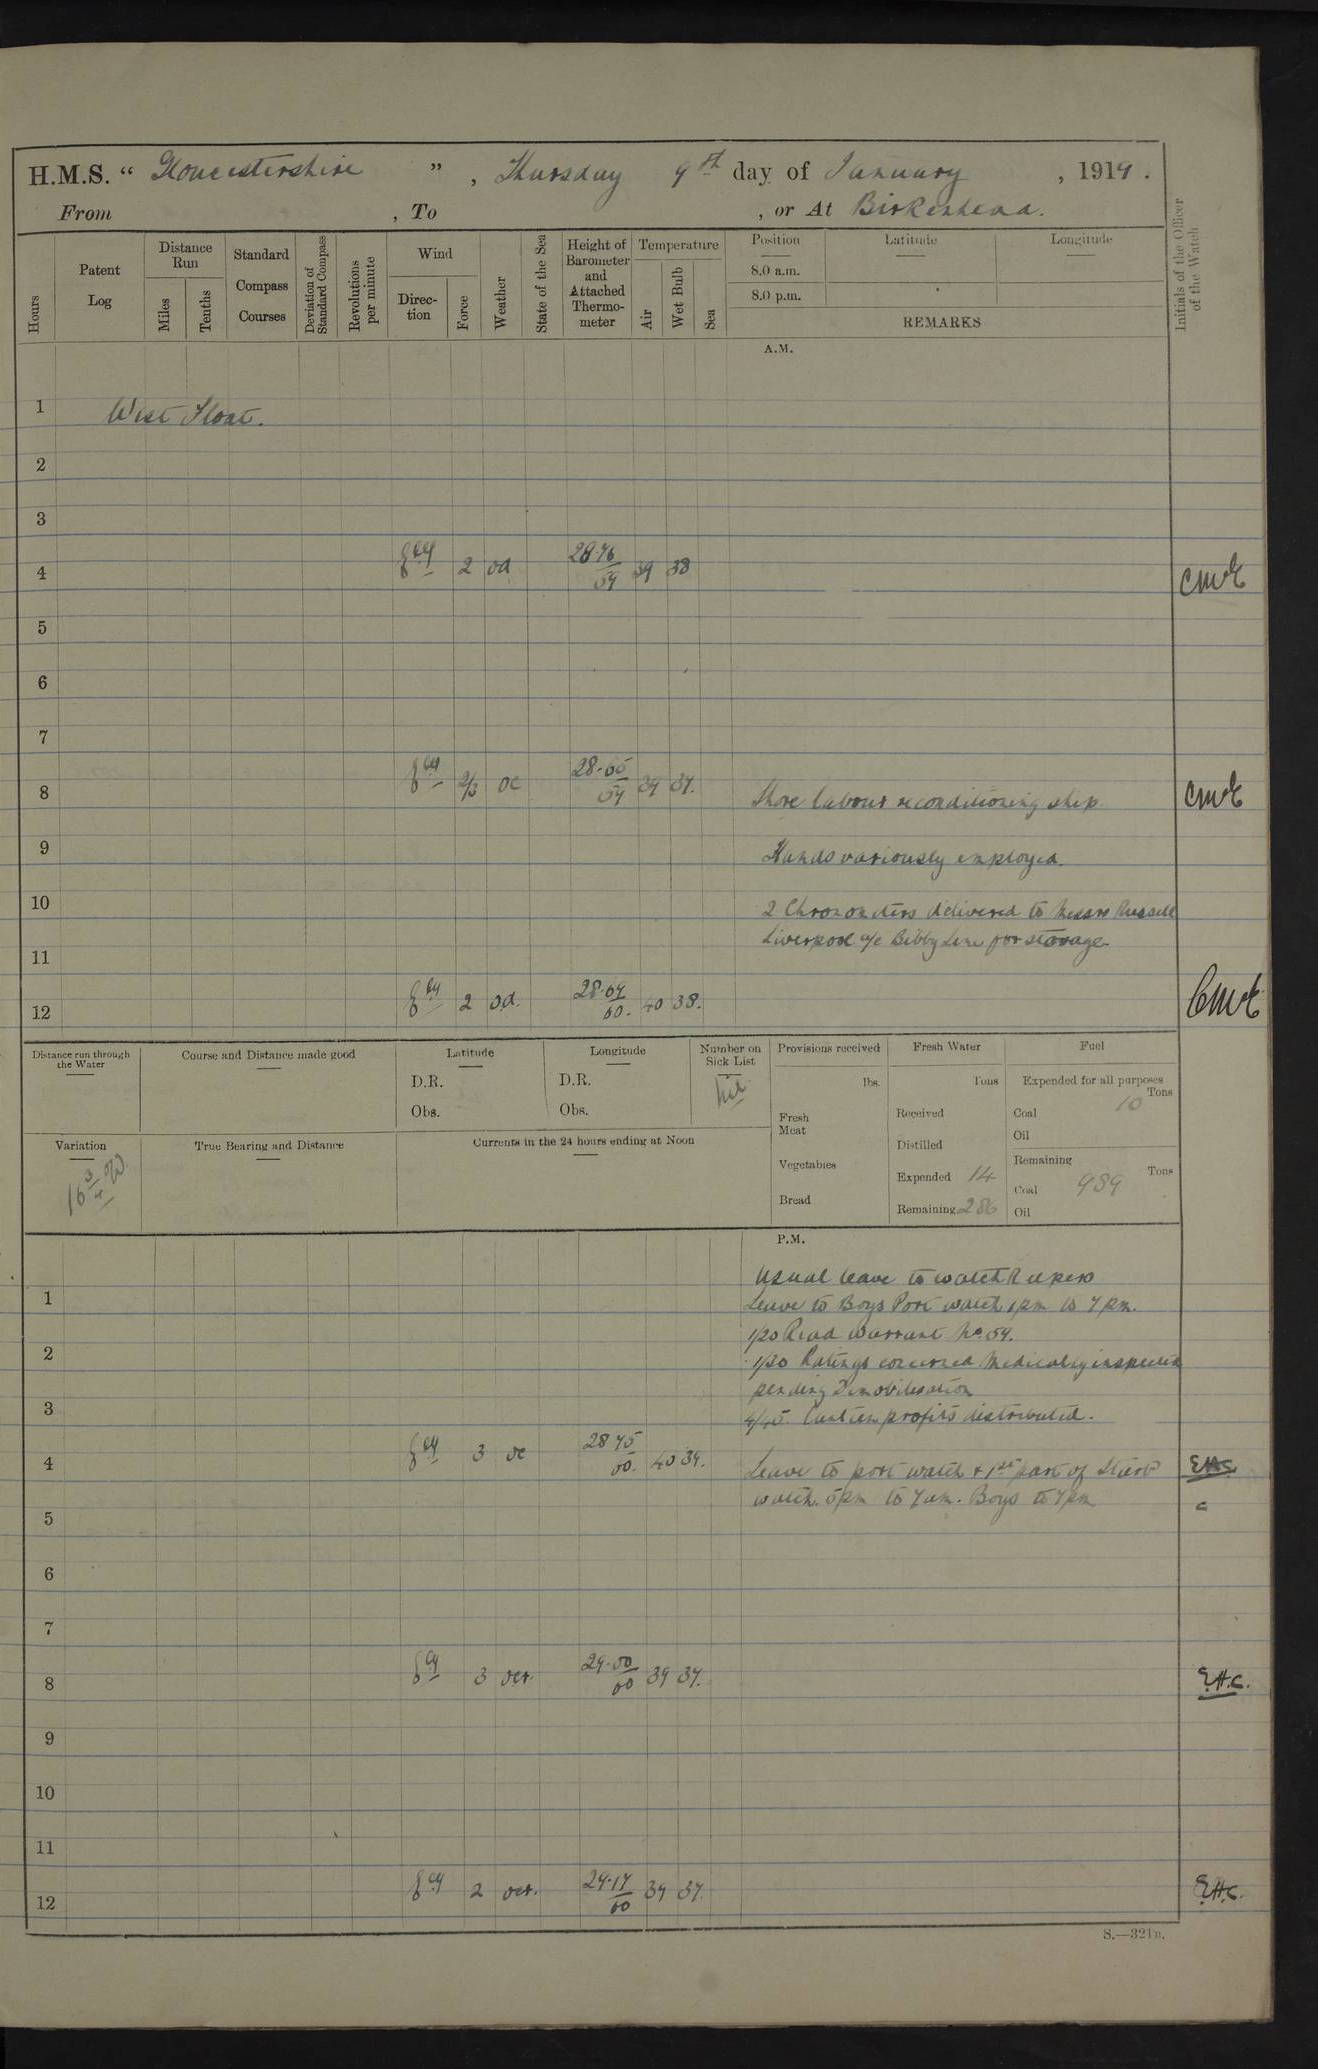 H.M.S. “ Gloucestershire ” , Thursday 9th day of January , 1919 .
From , To , or At Birkenhead.
Hours
Patent Log
Distance Run
Miles
Tenths
Standard Compass Courses
Deviation of Standard Compass
Revolutions per minute
Wind
Direction
Force
Weather
State of the Sea
Height of Barometer and Attached Thermometer
Temperature
Air
Wet Bulb
Sea
Position
8.0 a.m.
8.0 p.m.
Latitude
Longitude
REMARKS
Initials of the Officer of the Watch
A.M.
1 West Float.
2
3
4 2 od 28.76 59 39 38 CMVE
5
6
7
8 2/3 oc 28.65 59 39 37. Shore labour reconditioning ship. CMVE
9 Hands variously employed.
10 2 Chronometers delivered to Messrs Russell
Liverpool a/c Bibby Line for storage
11
12 2 o.d. 28.64 60. 40 38. CMVE
Distance run through the Water
Course and Distance made good
Latitude
D.R.
Obs.
Longitude
D.R.
Obs.
Number on Sick List
Nil
Variation
16 3/4 °W.
True Bearing and Distance
Currents in the 24 hours ending at Noon
Provisions received
lbs.
Fresh Meat
Vegetables
Bread
Fresh Water
Tons
Received
Distilled
Expended 14
Remaining 286
Fuel
Expended for all purposes
Tons
Coal 10
Oil
Remaining
Tons
Coal 989
Oil
P.M.
Usual leave to watch Keepers
1 Leave to Boys Port watch 1pm to 7pm.
1/20 Read warrant No. 59.
2 1/30 Ratings concerned Medically inspected
pending Demobilisation
3 4/45. Canteen profits distributed.
4 3 oc 28 75 60. 40 39. Leave to port watch & 1st part of Starbd E.H.C.
watch. 5pm to 7am. Boys to 7pm
5
6
7
8 3 ocr. 29.00 60 39 37. E.H.C.
9
10
11
12 2 ocr. 29.17 60 39 37. E.H.C.
S.—321B.